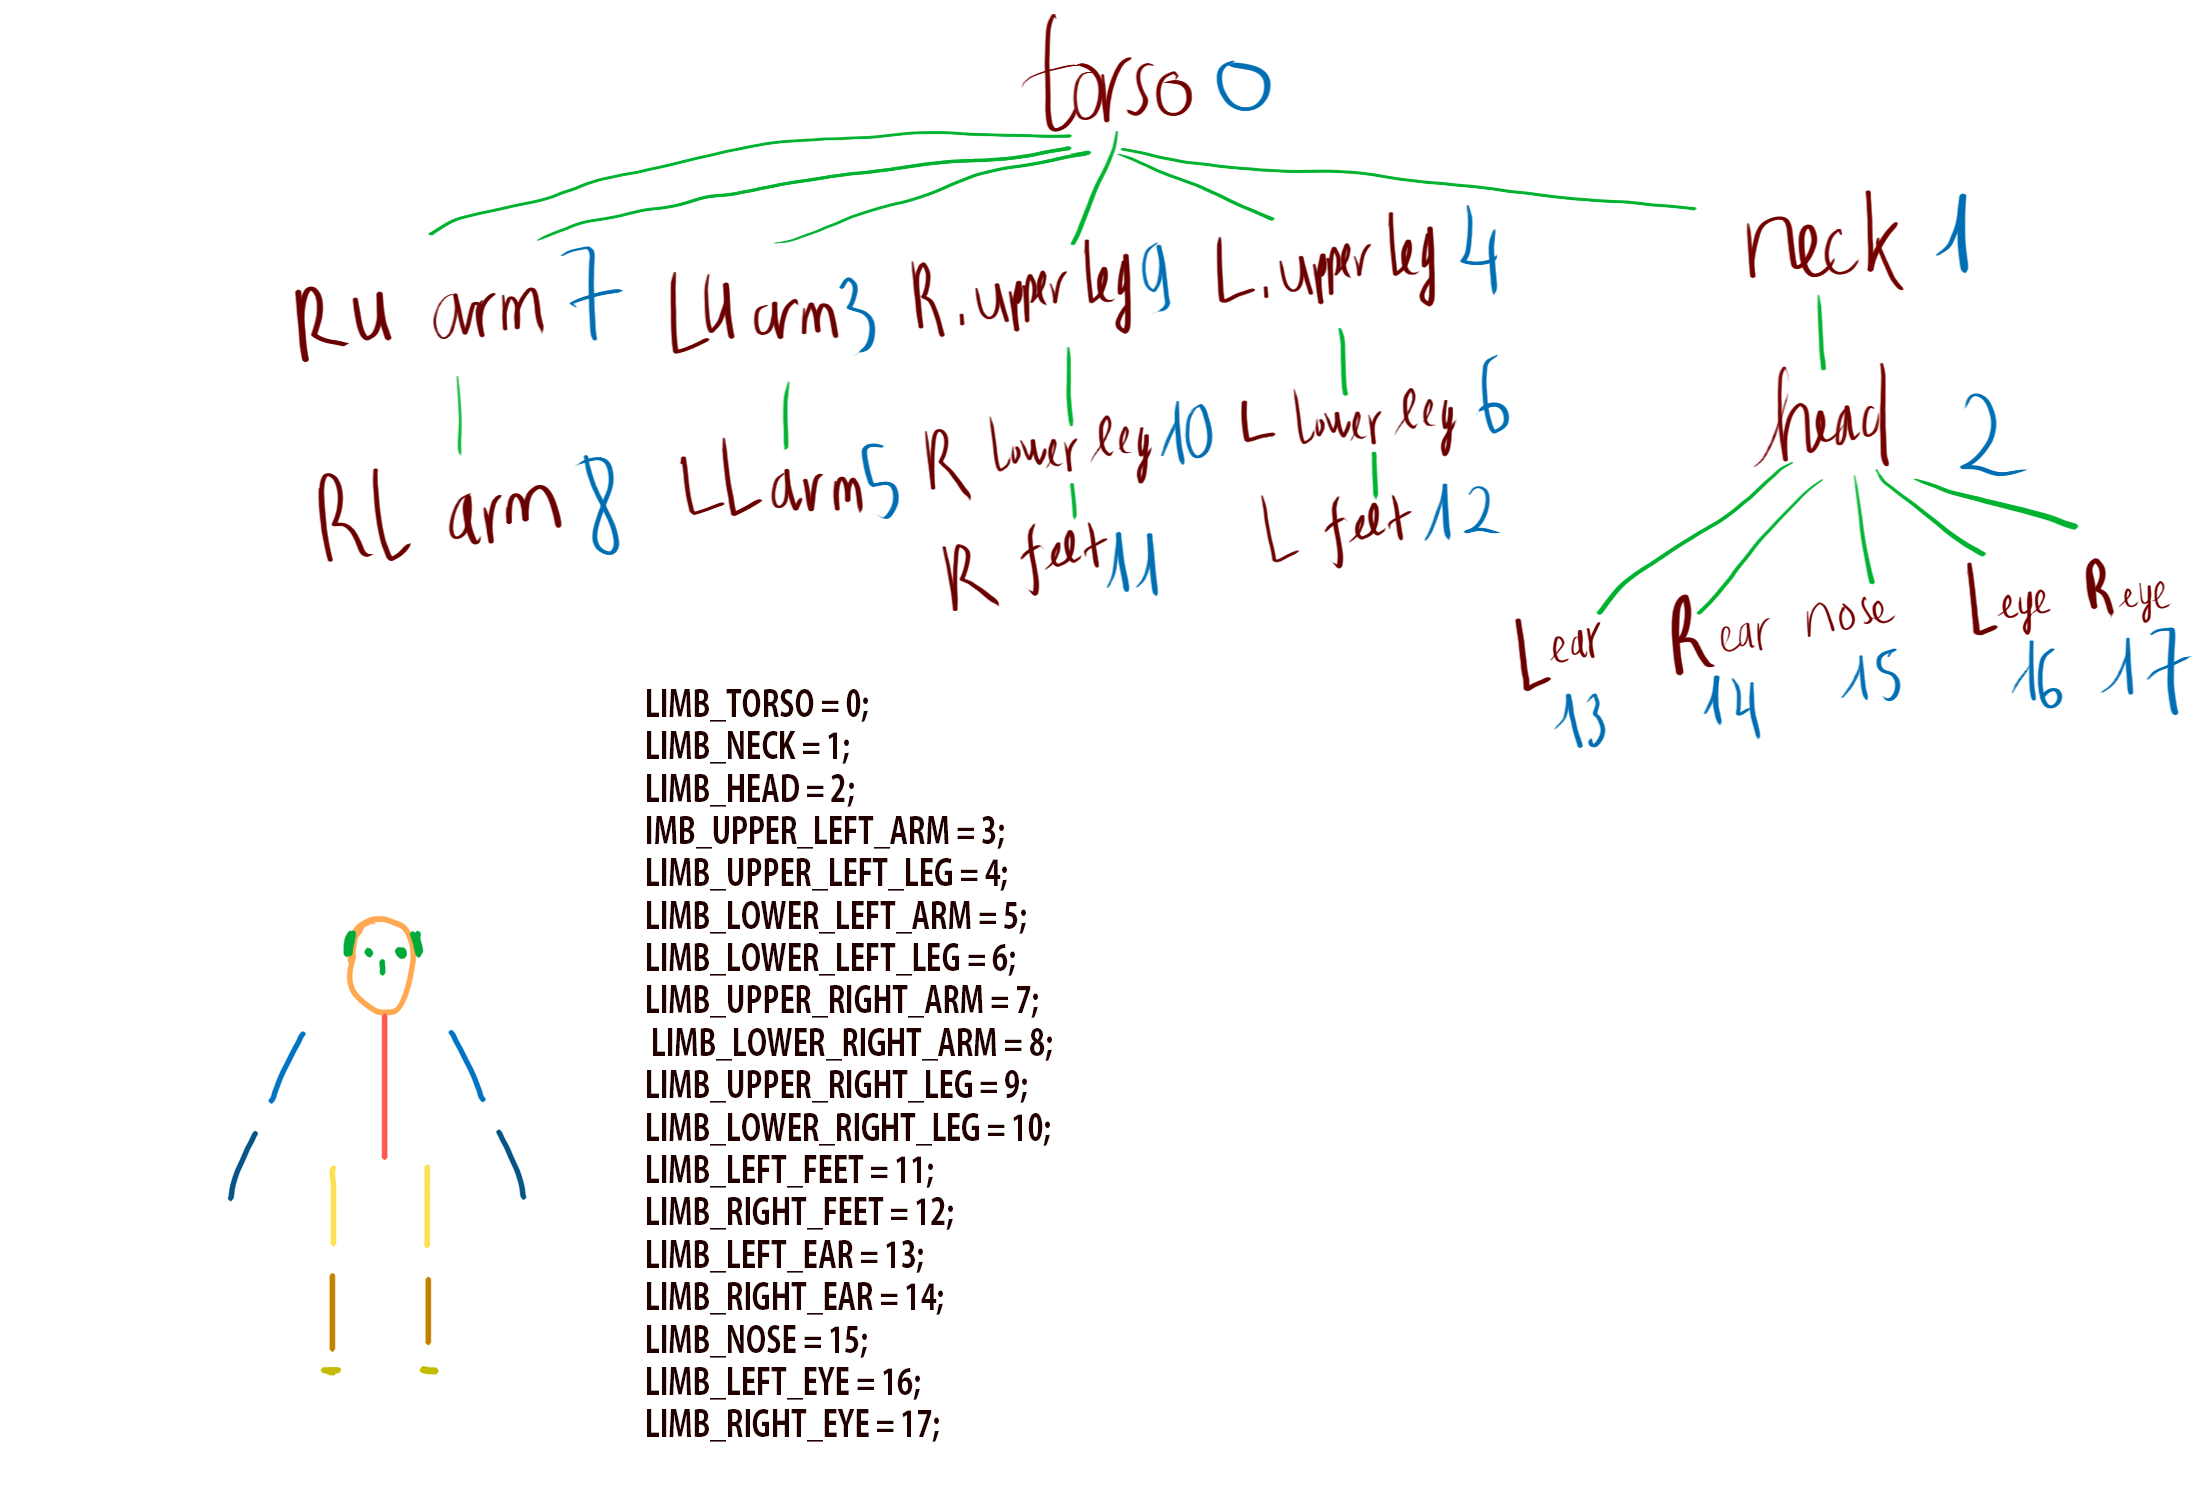 torso 0
RU arm 7 LU arm 3 R. upper leg 9 L. upper leg 4 neck 1
RL arm 8 LL arm 5 R lower leg 10 L lower leg 6 head 2
R feet 11 L feet 12
L ear R ear nose L eye R eye
13 14 15 16 17
LIMB_TORSO = 0;
LIMB_NECK = 1;
LIMB_HEAD = 2;
IMB_UPPER_LEFT_ARM = 3;
LIMB_UPPER_LEFT_LEG = 4;
LIMB_LOWER_LEFT_ARM = 5;
LIMB_LOWER_LEFT_LEG = 6;
LIMB_UPPER_RIGHT_ARM = 7;
LIMB_LOWER_RIGHT_ARM = 8;
LIMB_UPPER_RIGHT_LEG = 9;
LIMB_LOWER_RIGHT_LEG = 10;
LIMB_LEFT_FEET = 11;
LIMB_RIGHT_FEET = 12;
LIMB_LEFT_EAR = 13;
LIMB_RIGHT_EAR = 14;
LIMB_NOSE = 15;
LIMB_LEFT_EYE = 16;
LIMB_RIGHT_EYE = 17;